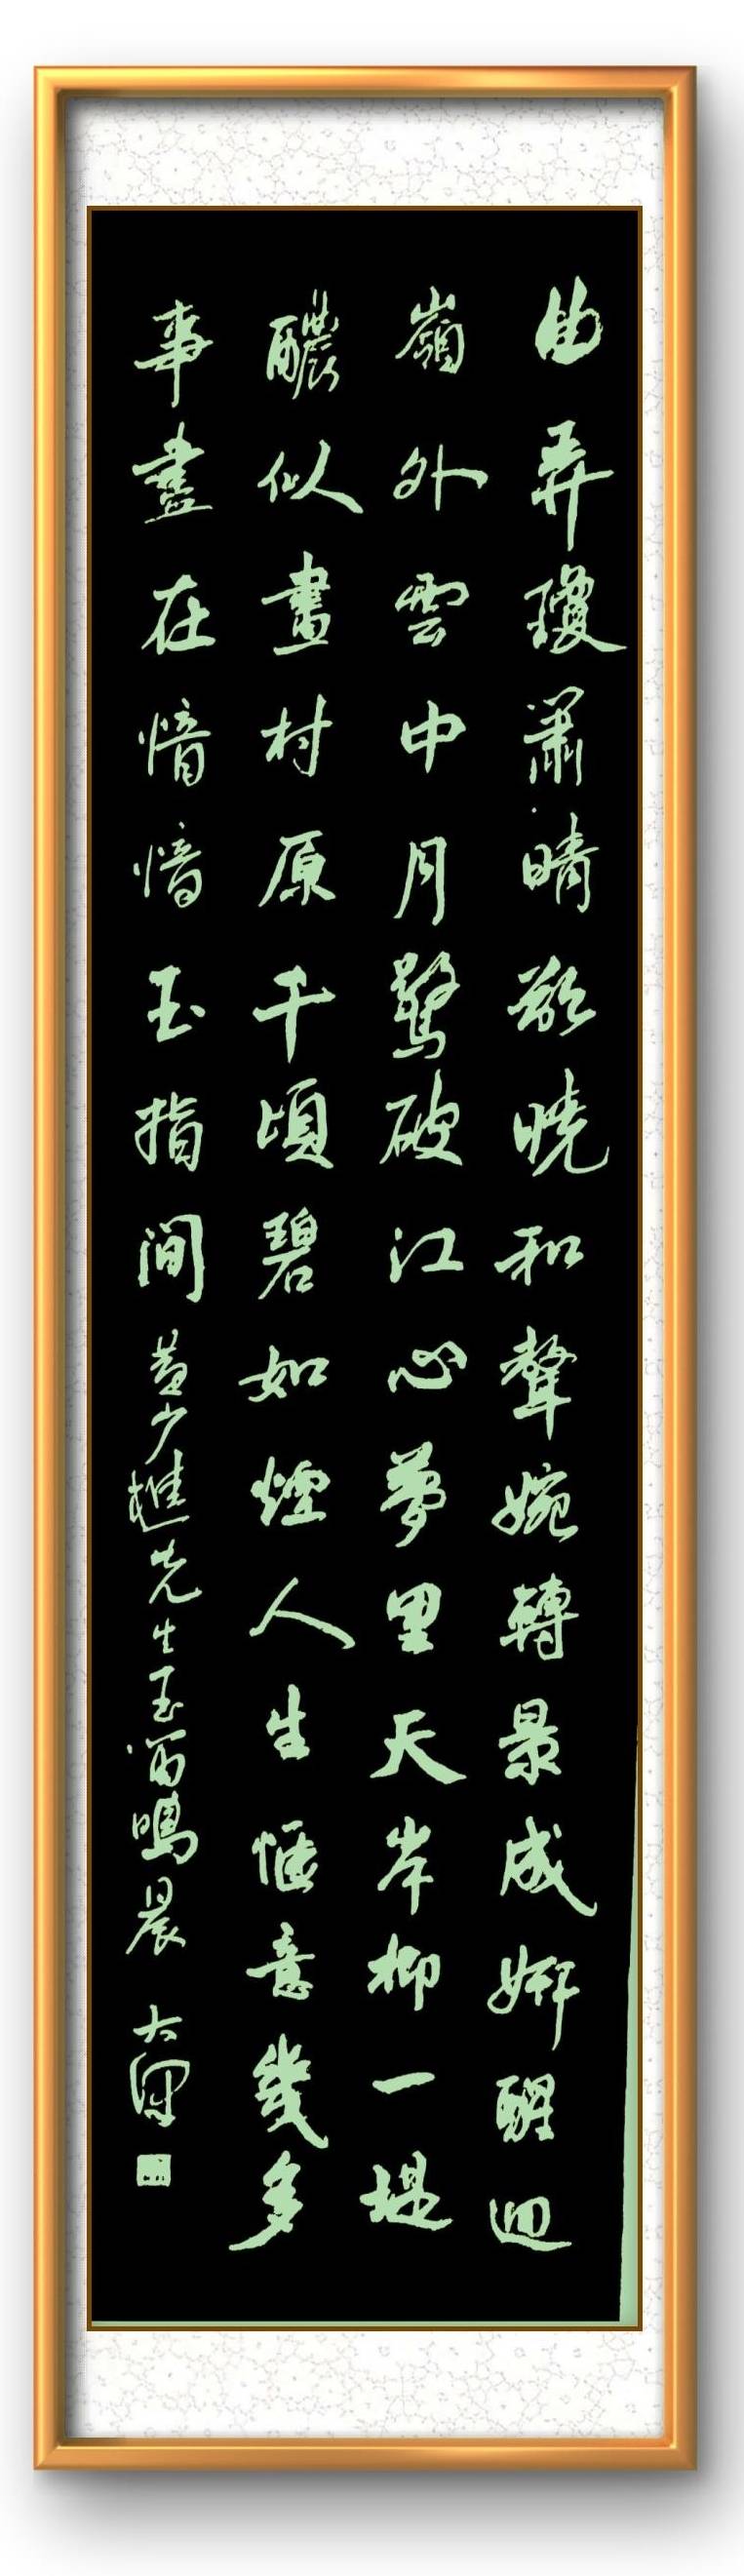 曲弄瓊簫晴欲曉和聲婉轉景成妍醒迴
嶺外雲中月驚破江心夢里天岸柳一堤
醲似畫村原千頃碧如煙人生愜意幾多
事盡在愔愔玉指間 黃少樵先生玉笛鳴晨 大澤